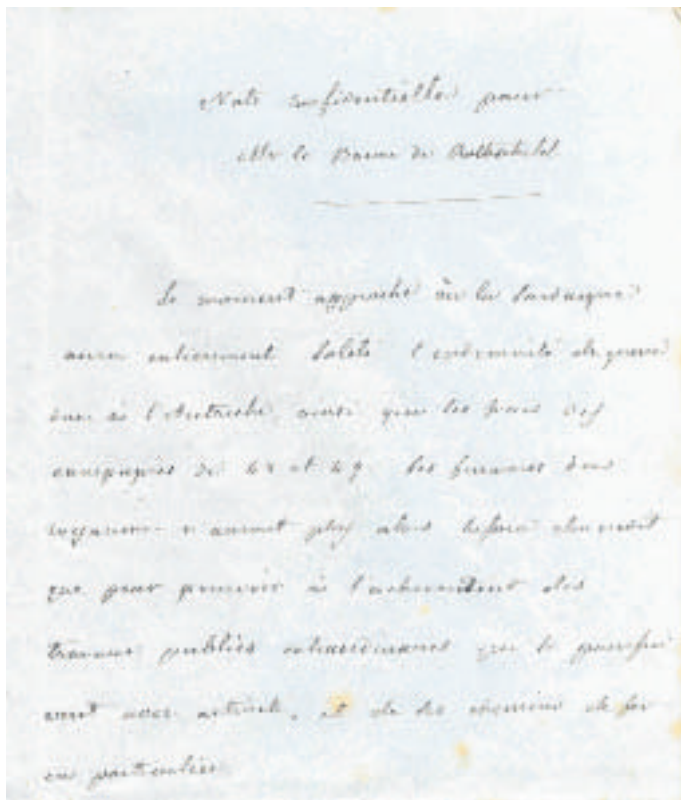 Note confidentielle pour
Mr le Baron de Rothschild
Le moment approche où la Sardaigne
aura entièrement soldé l'indemnité de guerre
due à l'Autriche ainsi que les frais des
campagnes de 48 et 49. Les finances du
royaume n'auront plus alors besoin
que pour pourvoir à l'achèvement des
travaux publics extraordinaires qui se
avec activité, et de ses chemins de fer
en particulier